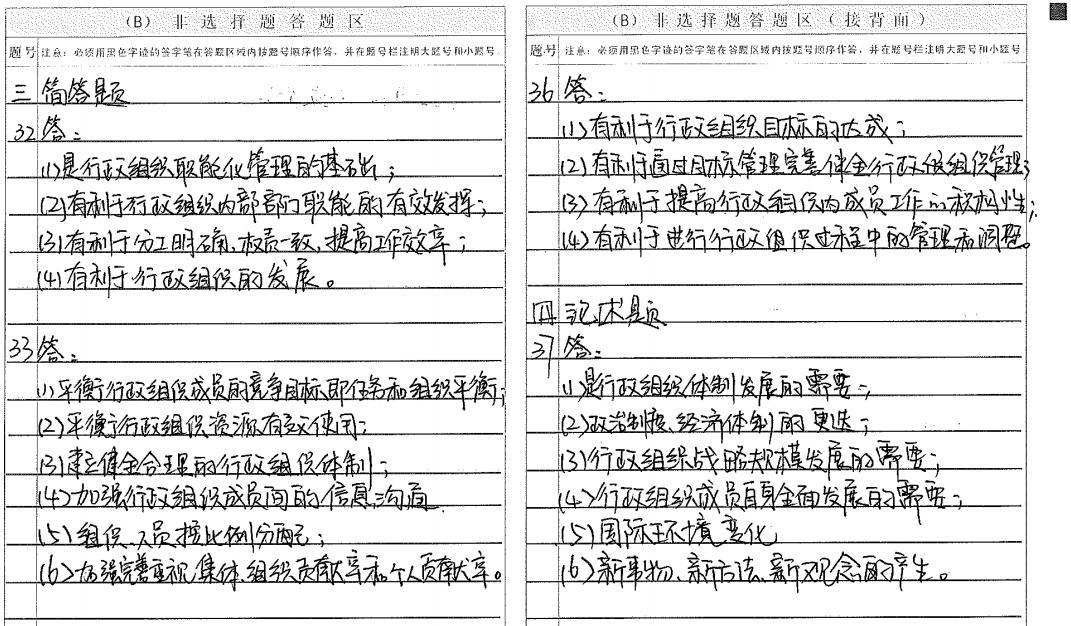 (B) 非选择题答题区
题号 注意：必须用黑色字迹的签字笔在答题区域内按题号顺序作答，并在题号栏注明大题号和小题号
三 简答题
32 答：
(1)是行政组织职能化管理的基础；
(2)有利于行政组织内部部门职能的有效发挥；
(3)有利于分工明确、权责一致、提高工作效率；
(4)有利于行政组织的发展。
33 答：
(1)平衡行政组织成员的竞争目标即任务和组织平衡；
(2)平衡行政组织资源有效使用；
(3)建立健全合理的行政组织体制；
(4)加强行政组织成员间的信息沟通
(5)组织人员按比例分配；
(6)加强完善重视集体、组织贡献率和个人贡献率。
(B) 非选择题答题区（接背面）
题号 注意：必须用黑色字迹的签字笔在答题区域内按题号顺序作答，并在题号栏注明大题号和小题号
36 答：
(1)有利于行政组织目标的达成；
(2)有利于通过目标管理完善健全行政级组织管理；
(3)有利于提高行政组织内成员工作的积极性；
(4)有利于进行行政组织过程中的管理和调整。
四 论术题
37 答：
(1)是行政组织体制发展的需要；
(2)政治制度、经济体制的更迭；
(3)行政组织战略规模发展的需要；
(4)行政组织成员自身全面发展的需要；
(5)国际环境变化
(6)新事物、新方法、新观念的产生。